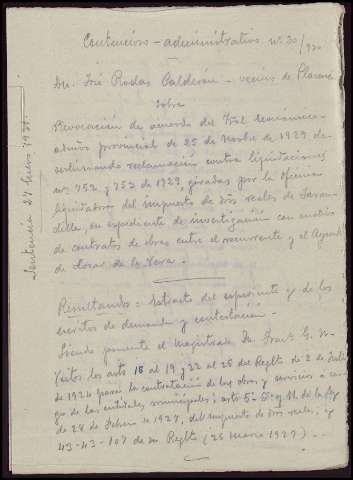 Contencioso-administrativo nº 30/930
Dn. José Rodas Calderón - vecino de Plasencia
sobre
Revocación de acuerdo del Tral Económico-
admvo provincial de 25 de Novbre de 1929 de-
sestimando reclamación contra liquidaciones
nos 752 y 753 de 1929, giradas por la oficina
liquidadora del impuesto de Dros reales de Jaran-
dilla, en expediente de investigación con motivo
de contratos de obras entre el recurrente y el Ayunto
de Losar de la Vera.-
Sentencia 27 Enero 1931
Resultandos = extracto del expediente y de los
escritos de demanda y contestación.-
Siendo ponente el Magistrado Dn. Franco G.
Vistos los arts 18 al 19 y 22 al 26 del Reglto de 2 de Julio
de 1924 para la contratación de las obras y servicios a car-
go de las entidades municipales; arts 5-6- y 11 de la ley
de 28 de Febrero de 1927, del impuesto de Dros reales; y
43-43-107 de su Reglto (26 Marzo 1927)...